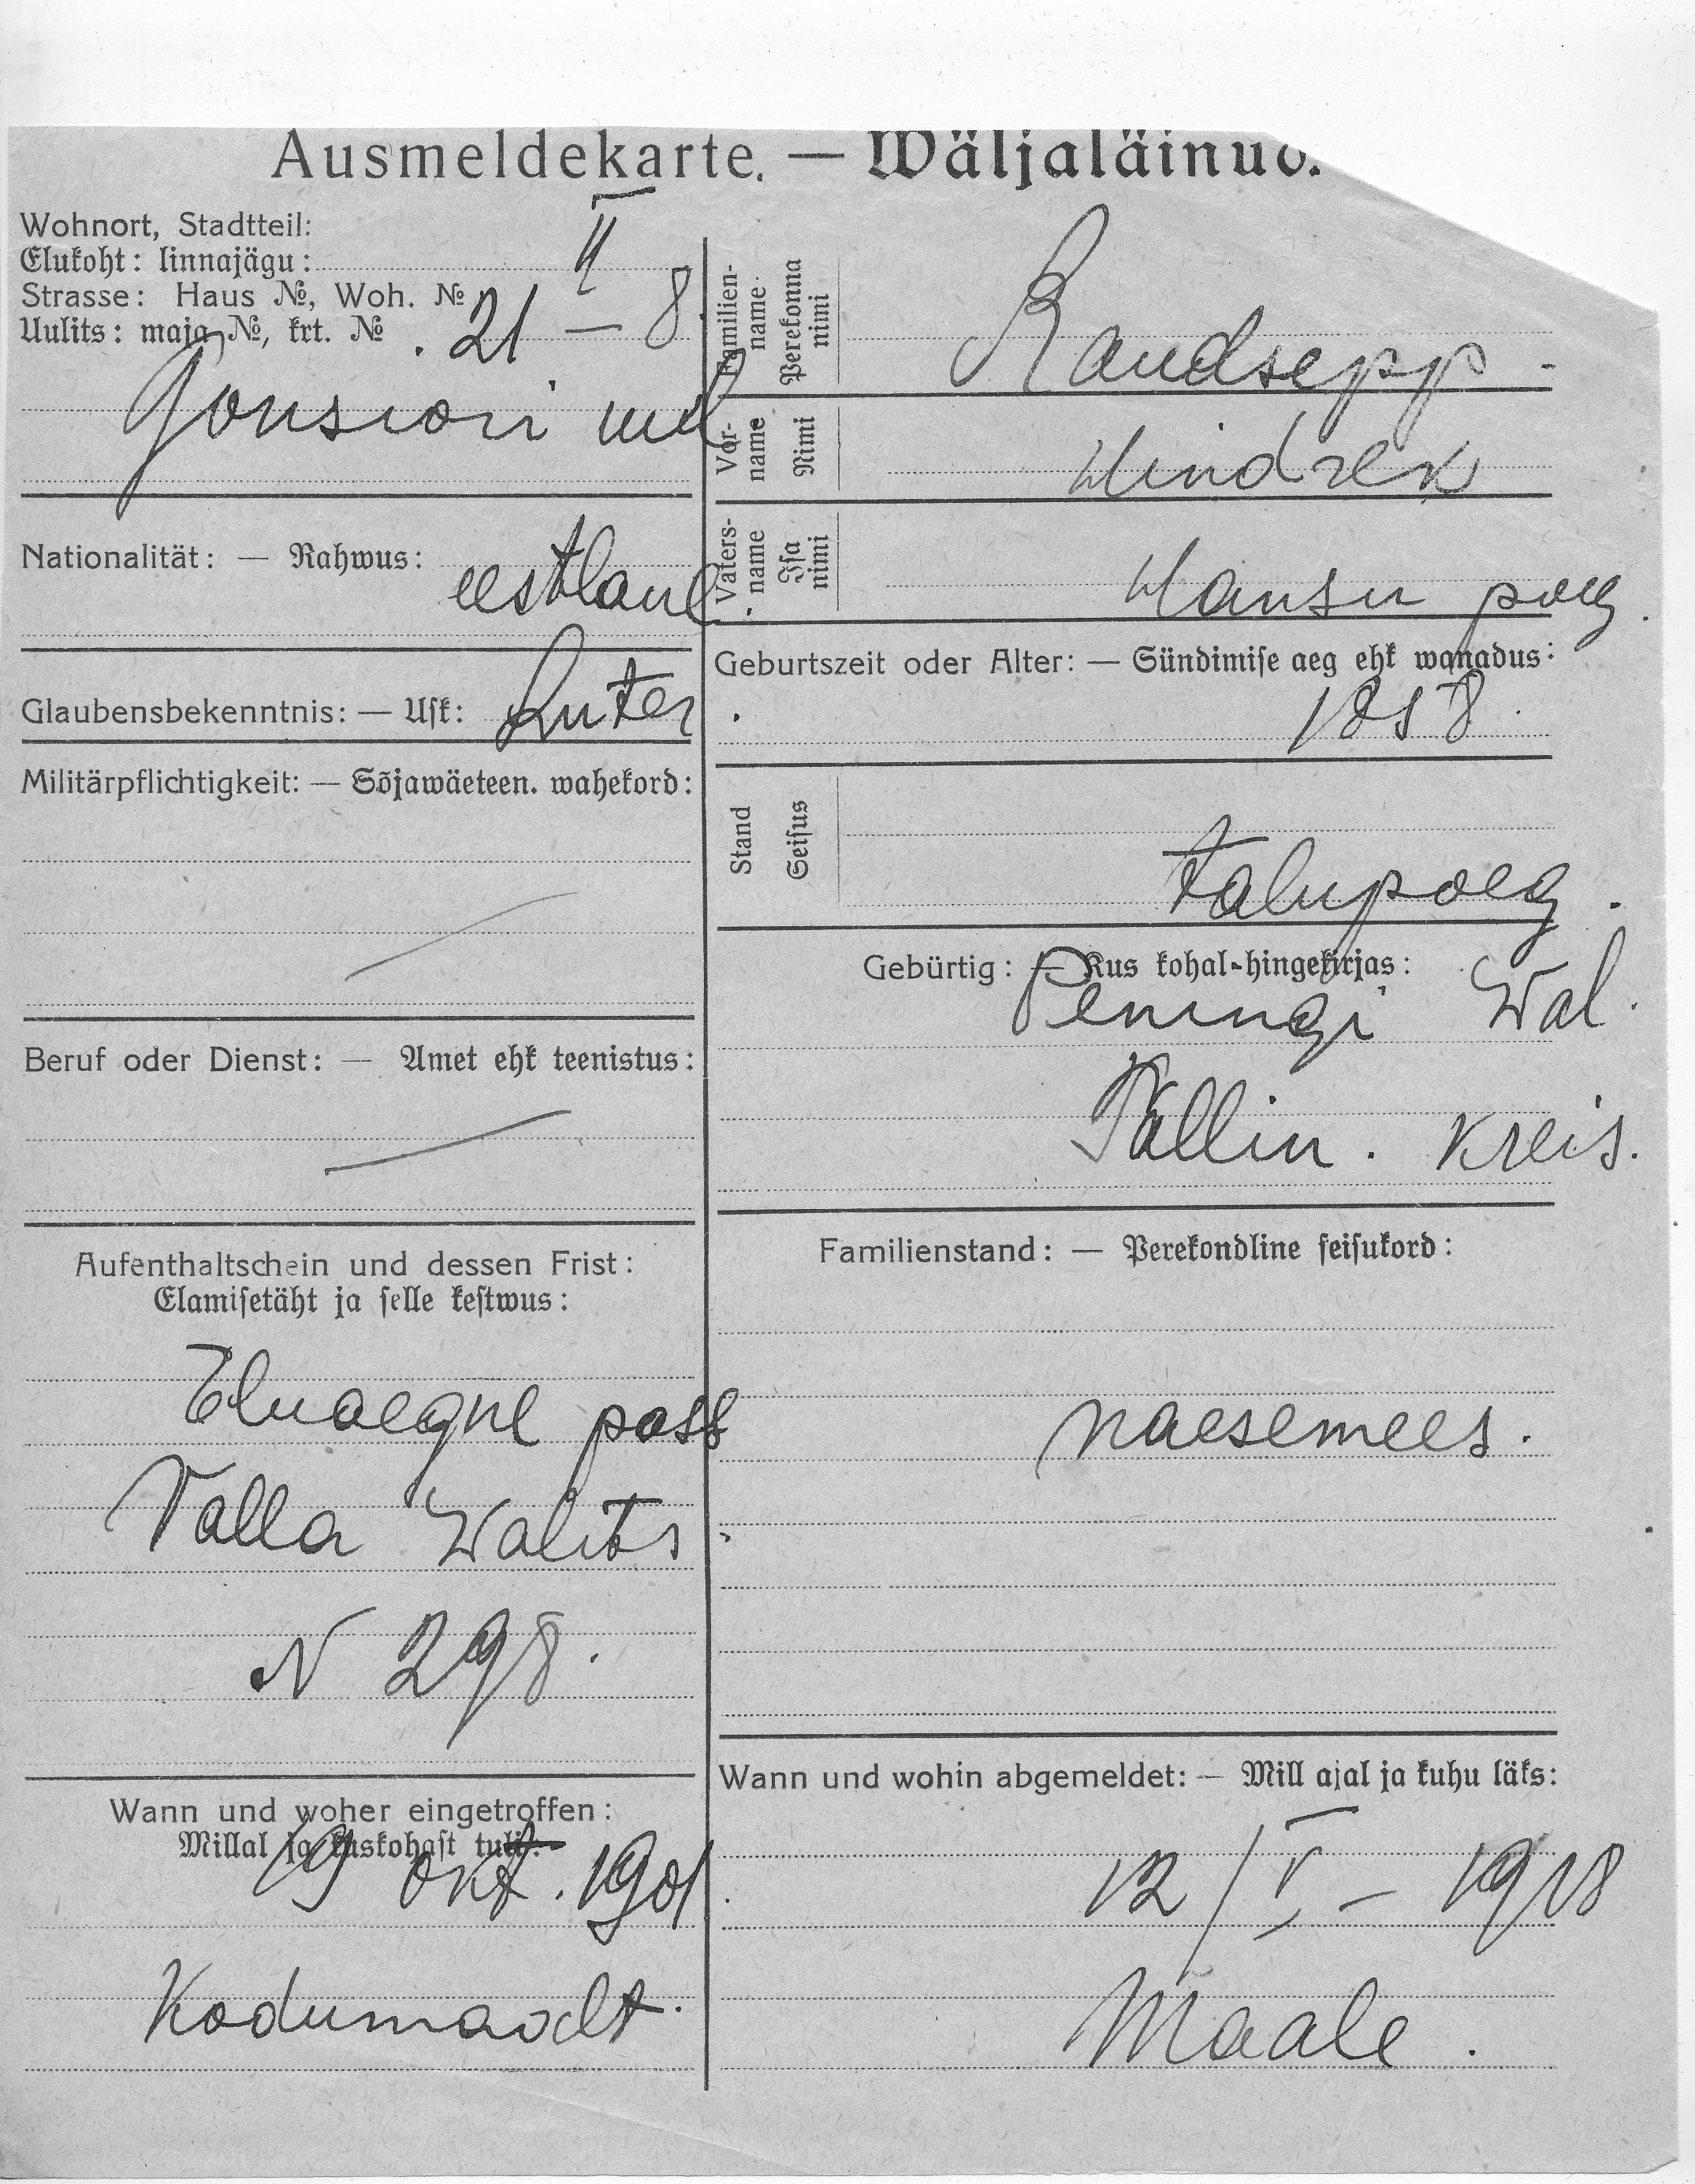 Ausmeldekarte. — Wäljaläinud.
Wohnort, Stadtteil:
Elukoht: linnajägu: II
Strasse: Haus №, Woh. №
Uulits: maja №, krt. № 21 – 8.
Gonsiori uul
Nationalität: — Rahwus: eestlane.
Glaubensbekenntnis: — Usk: Luter.
Militärpflichtigkeit: — Sõjawäeteen. wahekord:
Beruf oder Dienst: — Amet ehk teenistus:
Aufenthaltschein und dessen Frist:
Elamisetäht ja selle kestwus:
Eluaegne pass
Valla Walits.
N 298.
Wann und woher eingetroffen:
Millal ja kuskohast tuli:
19 okt. 1901.
Kodumaalt.
Familien-
name
Perekonna
nimi
Raudsepp.
Vor-
name
Nimi
Hindrek
Vaters-
name
Isa
nimi
Hansu poeg.
Geburtszeit oder Alter: — Sündimise aeg ehk wanadus:
1858.
Stand
Seisus
talupoeg.
Gebürtig: — Kus kohal-hingekirjas:
Peningi Wal.
Tallin. Kreis.
Familienstand: — Perekondline seisukord:
naesemees.
Wann und wohin abgemeldet: — Mill ajal ja kuhu läks:
12/V – 1918
Maale.